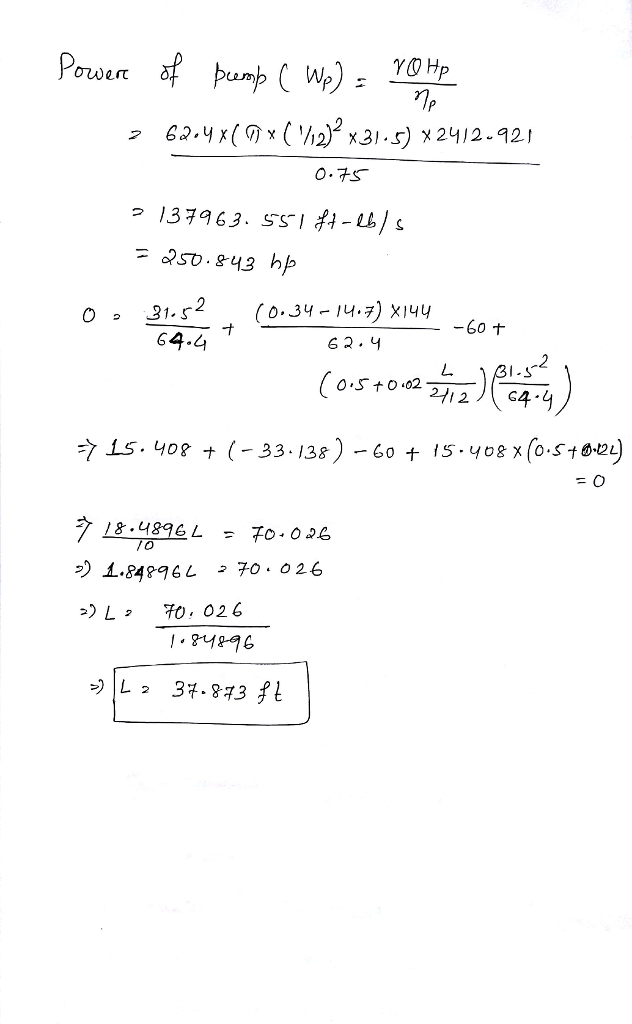 Power of pump ( Wp) = γQHp / ηp
= 62.4 x (π x (1/12)² x 31.5) x 2412.921 / 0.75
= 137963.551 ft-lb/s
= 250.843 hp
0 = 31.5² / 64.4 + (0.34 - 14.7) x 144 / 62.4 - 60 +
(0.5 + 0.02 L / 2/12) (31.5² / 64.4)
=> 15.408 + (-33.138) - 60 + 15.408 x (0.5 + 0.12L)
= 0
=> 18.4896 L / 10 = 70.026
=> 1.84896L = 70.026
=> L = 70.026 / 1.84896
=> L = 37.873 ft